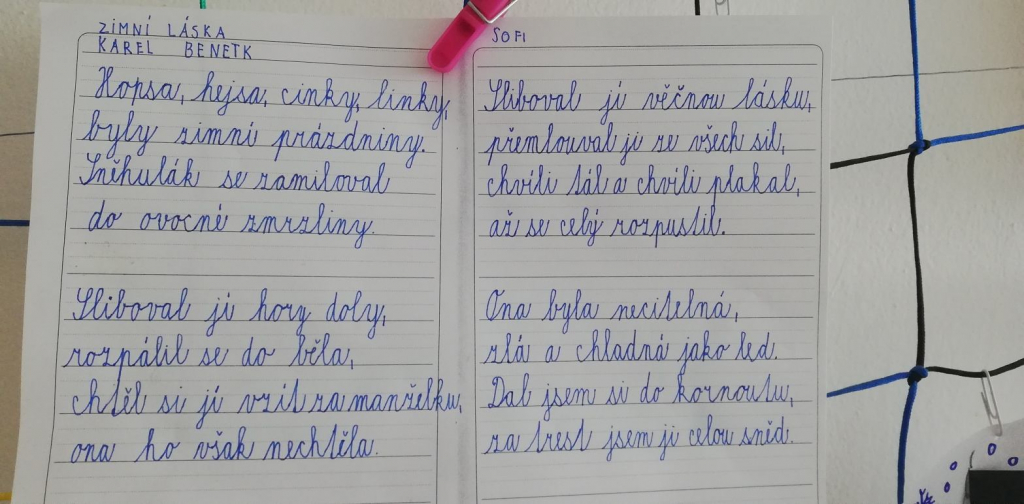 ZIMNÍ LÁSKA
KAREL BENETK
Hopsa, hejsa, cinky, linky,
byly zimní prázdniny.
Sněhulák se zamiloval
do ovocné zmrzliny.
Sliboval jí hory doly,
rozpálil se do běla,
chtěl si jí vzít za manželku,
ona ho však nechtěla.
SOFI
Sliboval jí věčnou lásku,
přemlouval ji ze všech sil,
chvíli tál a chvíli plakal,
až se celý rozpustil.
Ona byla necitelná,
zlá a chladná jako led.
Dal jsem si do kornoutu,
za trest jsem ji celou sněd.